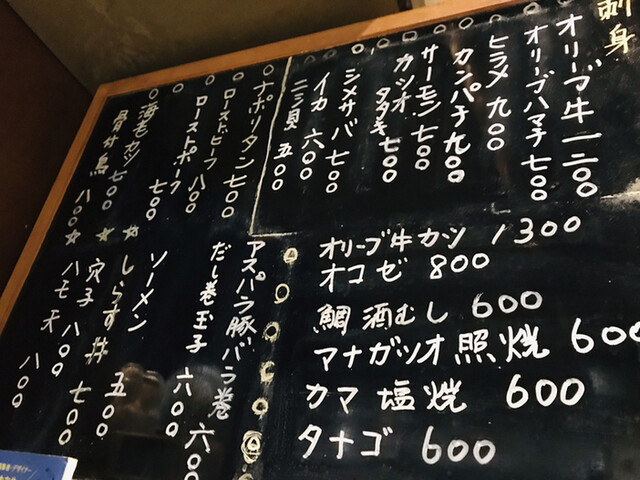 刺身
オリーブ牛 一二〇〇
オリーブハマチ 七〇〇
ヒラメ 九〇〇
カンパチ 九〇〇
サーモン 七〇〇
カツオタタキ 七〇〇
シメサバ 七〇〇
イカ 六〇〇
ニシ貝 五〇〇
ナポリタン 七〇〇
ローストビーフ 八〇〇
ローストポーク 七〇〇
海老カツ 七〇〇
骨付鳥 八〇〇
オリーブ牛カツ 1300
オコゼ 800
鯛酒むし 600
マナガツオ照焼 600
カマ塩焼 600
タナゴ 600
アスパラ豚バラ巻 六〇〇
だし巻玉子 六〇〇
ソーメン 五〇〇
しらす丼 七〇〇
穴子 八〇〇
ハモ天 八〇〇